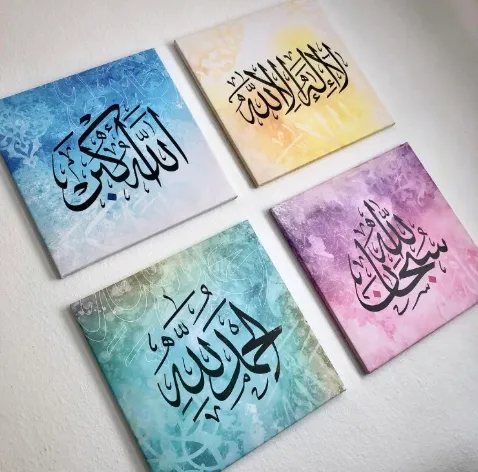 الله أكبر
لا إله إلا الله
الحمد لله
سبحان الله